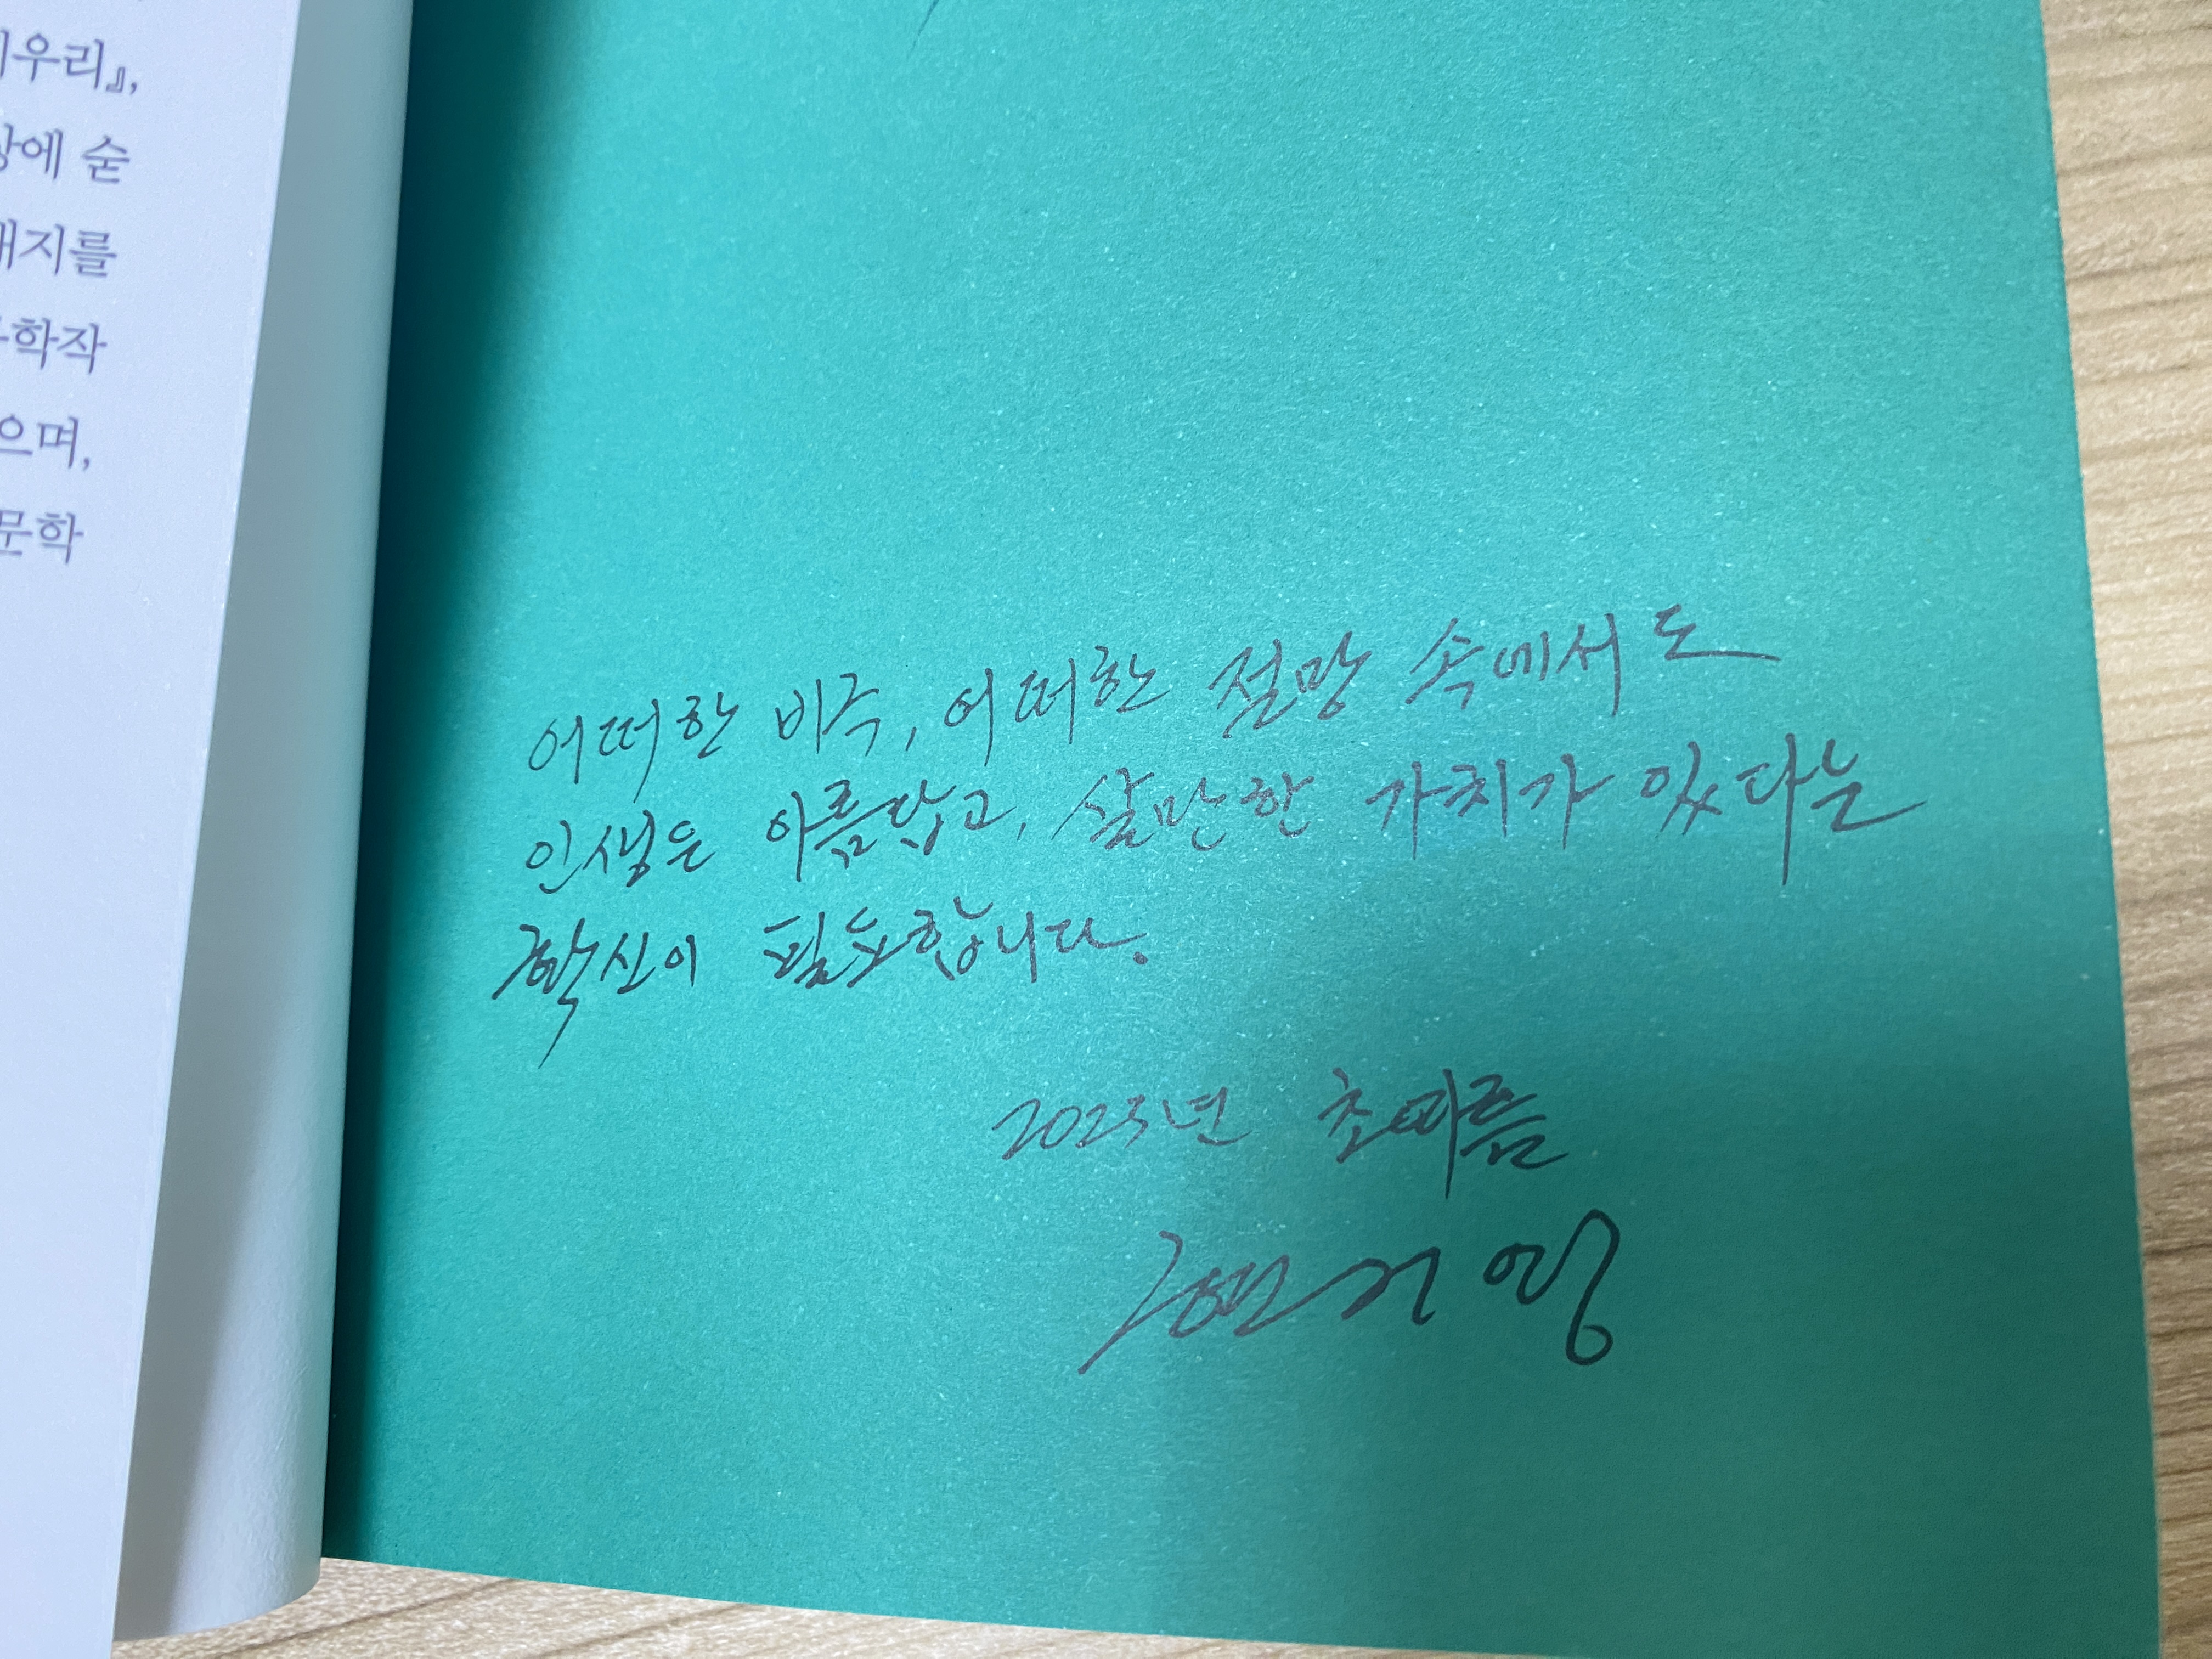 우리』,
에 숟
지를
학작
으며,
문학
어떠한 비극, 어떠한 절망 속에서도
인생은 아름답고, 살만한 가치가 있다는
확신이 필요합니다.
2023년 초여름
현기영